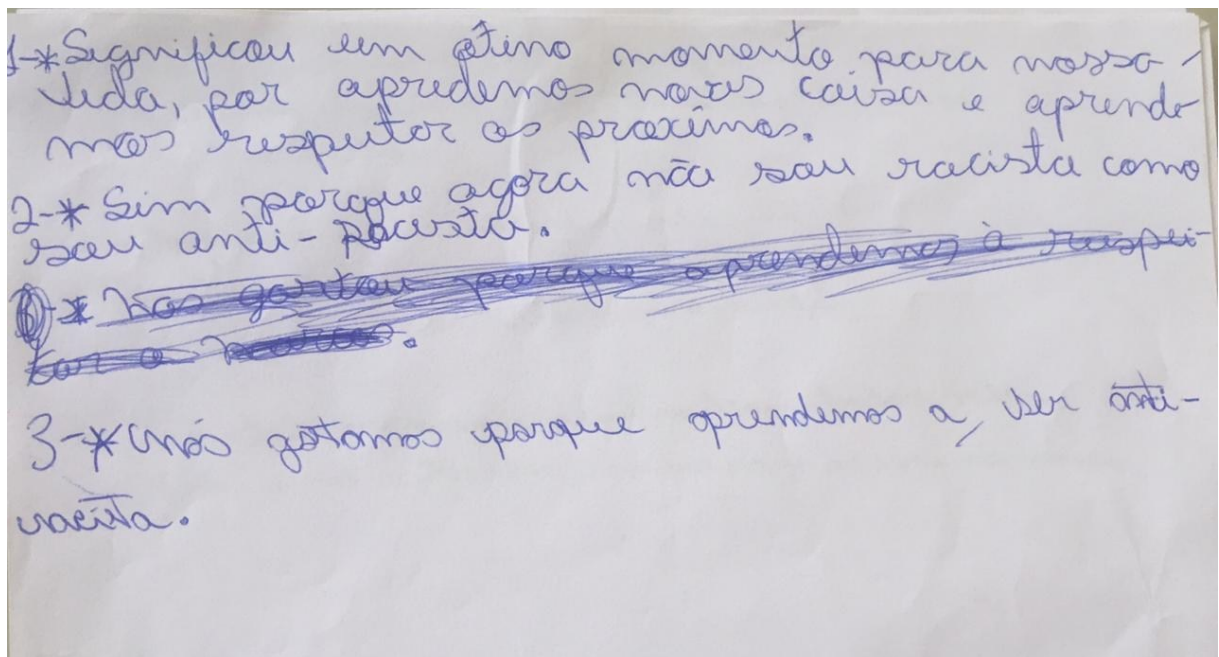 1-*Significou um ótimo momento para nossa
vida, por apredemos novas coisa e aprende
mos respeitar os proximos.
2-* Sim porque agora não sou racista como
sou anti-racista.
* Nos gostou porque aprendemos à respei-
tar o
3-* Nós gostamos porque aprendemos a, ser anti-
racista.